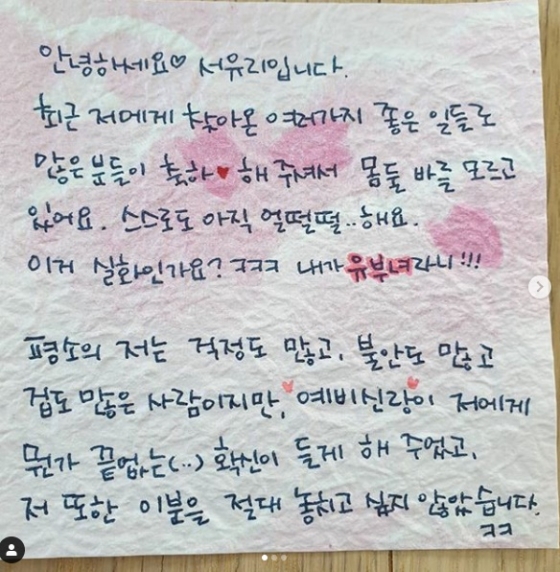 안녕하세요♡ 서유리입니다.
최근 저에게 찾아온 여러가지 좋은 일들로
많은분들이 축하♥해 주셔서 몸둘 바를 모르고
있어요. 스스로도 아직 얼떨떨..해요.
이거 실화인가요? ㅋㅋㅋ 내가 유부녀라니!!!
평소의 저는 걱정도 많고, 불안도 많고
겁도 많은 사람이지만, 예비신랑이 저에게
뭔가 끝없는(..) 확신이 들게 해 주었고,
저 또한 이분을 절대 놓치고 싶지 않았습니다.
ㅋㅋ